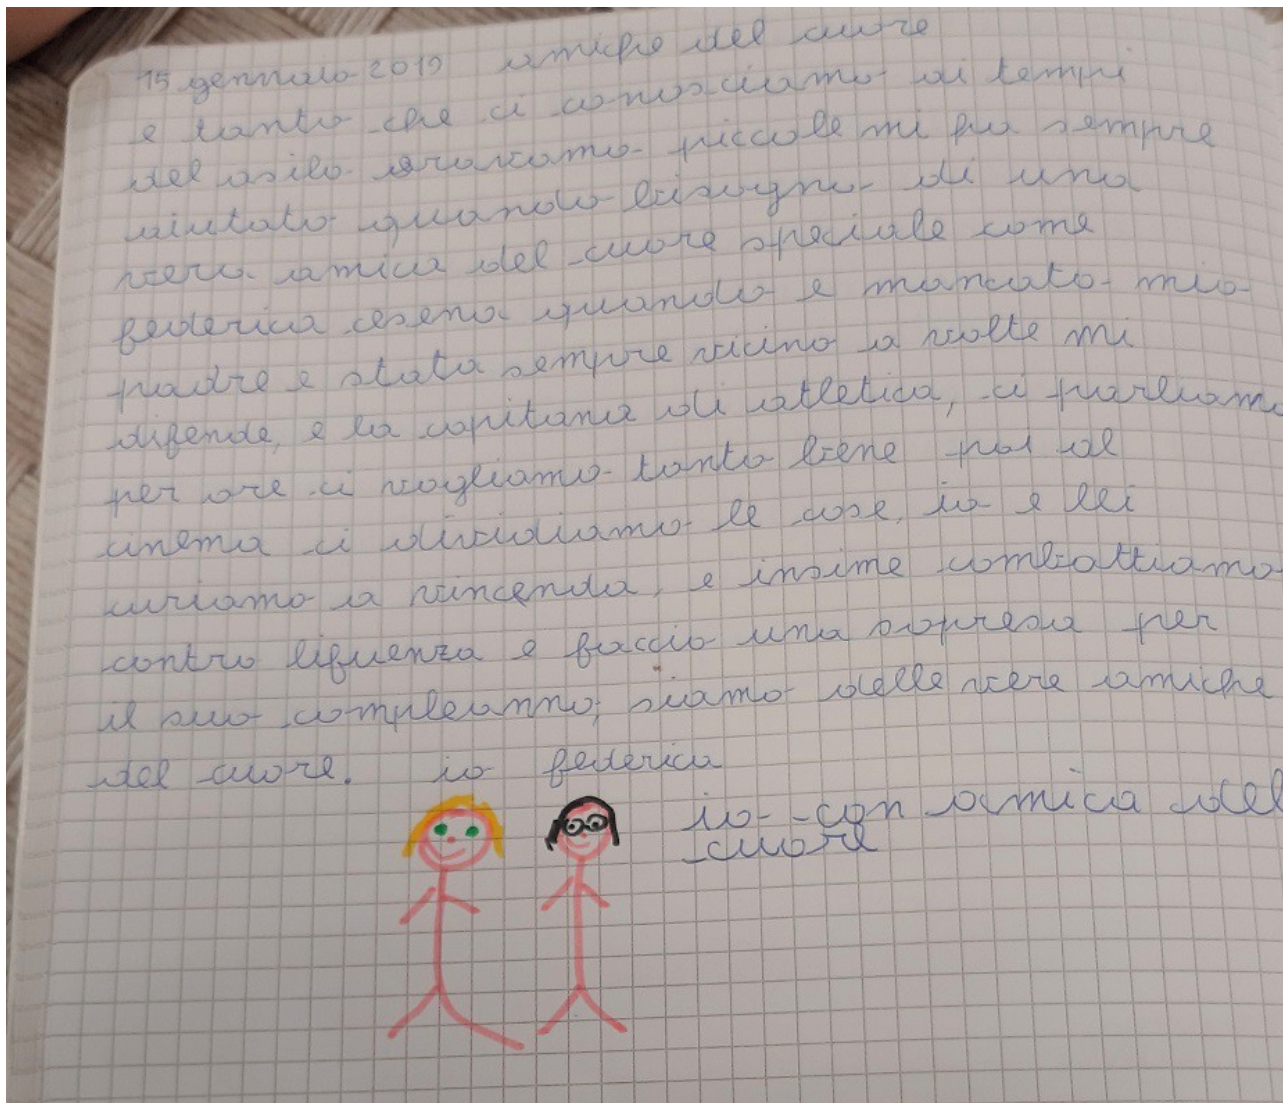 15 gennaio 2019 amiche del cuore
e tanto che ci conosciamo ai tempi
del asilo eravamo piccole mi ha sempre
aiutato quando bisogno di una
vera amica del cuore speciale come
federica cesena quando e mancato mio
padre e stata sempre vicino a volte mi
difende, e la capitana di atletica, ci parliamo
per ore ci vogliamo tanto bene poi al
cinema ci dividiamo le cose, io e lei
curiamo a vincenda, e insime combattiamo
contro lifuenza e faccio una sopresa per
il suo compleanno, siamo delle vere amiche
del cuore. io federica
io con amica del
cuore